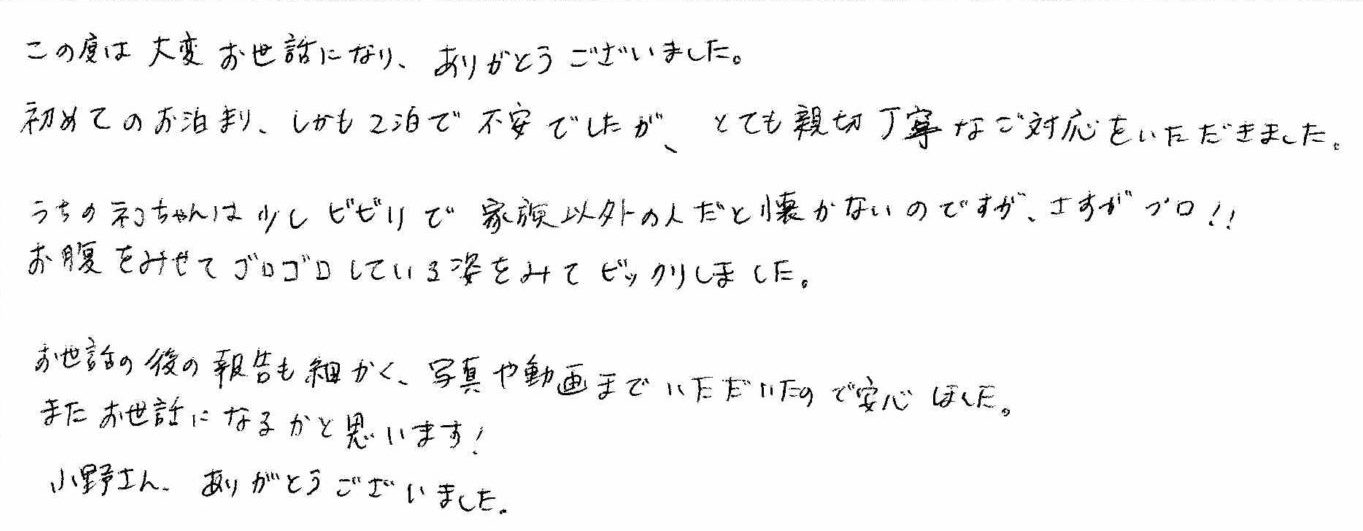 この度は大変お世話になり、ありがとうございました。
初めてのお泊まり、しかも2泊で不安でしたが、とても親切丁寧なご対応をいただきました。
うちのネコちゃんは少しビビリで家族以外の人だと懐かないのですが、さすがプロ!!
お腹をみせてゴロゴロしている姿をみてビックリしました。
お世話の後の報告も細かく、写真や動画までいただいたので安心しました。
またお世話になるかと思います!
小野さん、ありがとうございました。